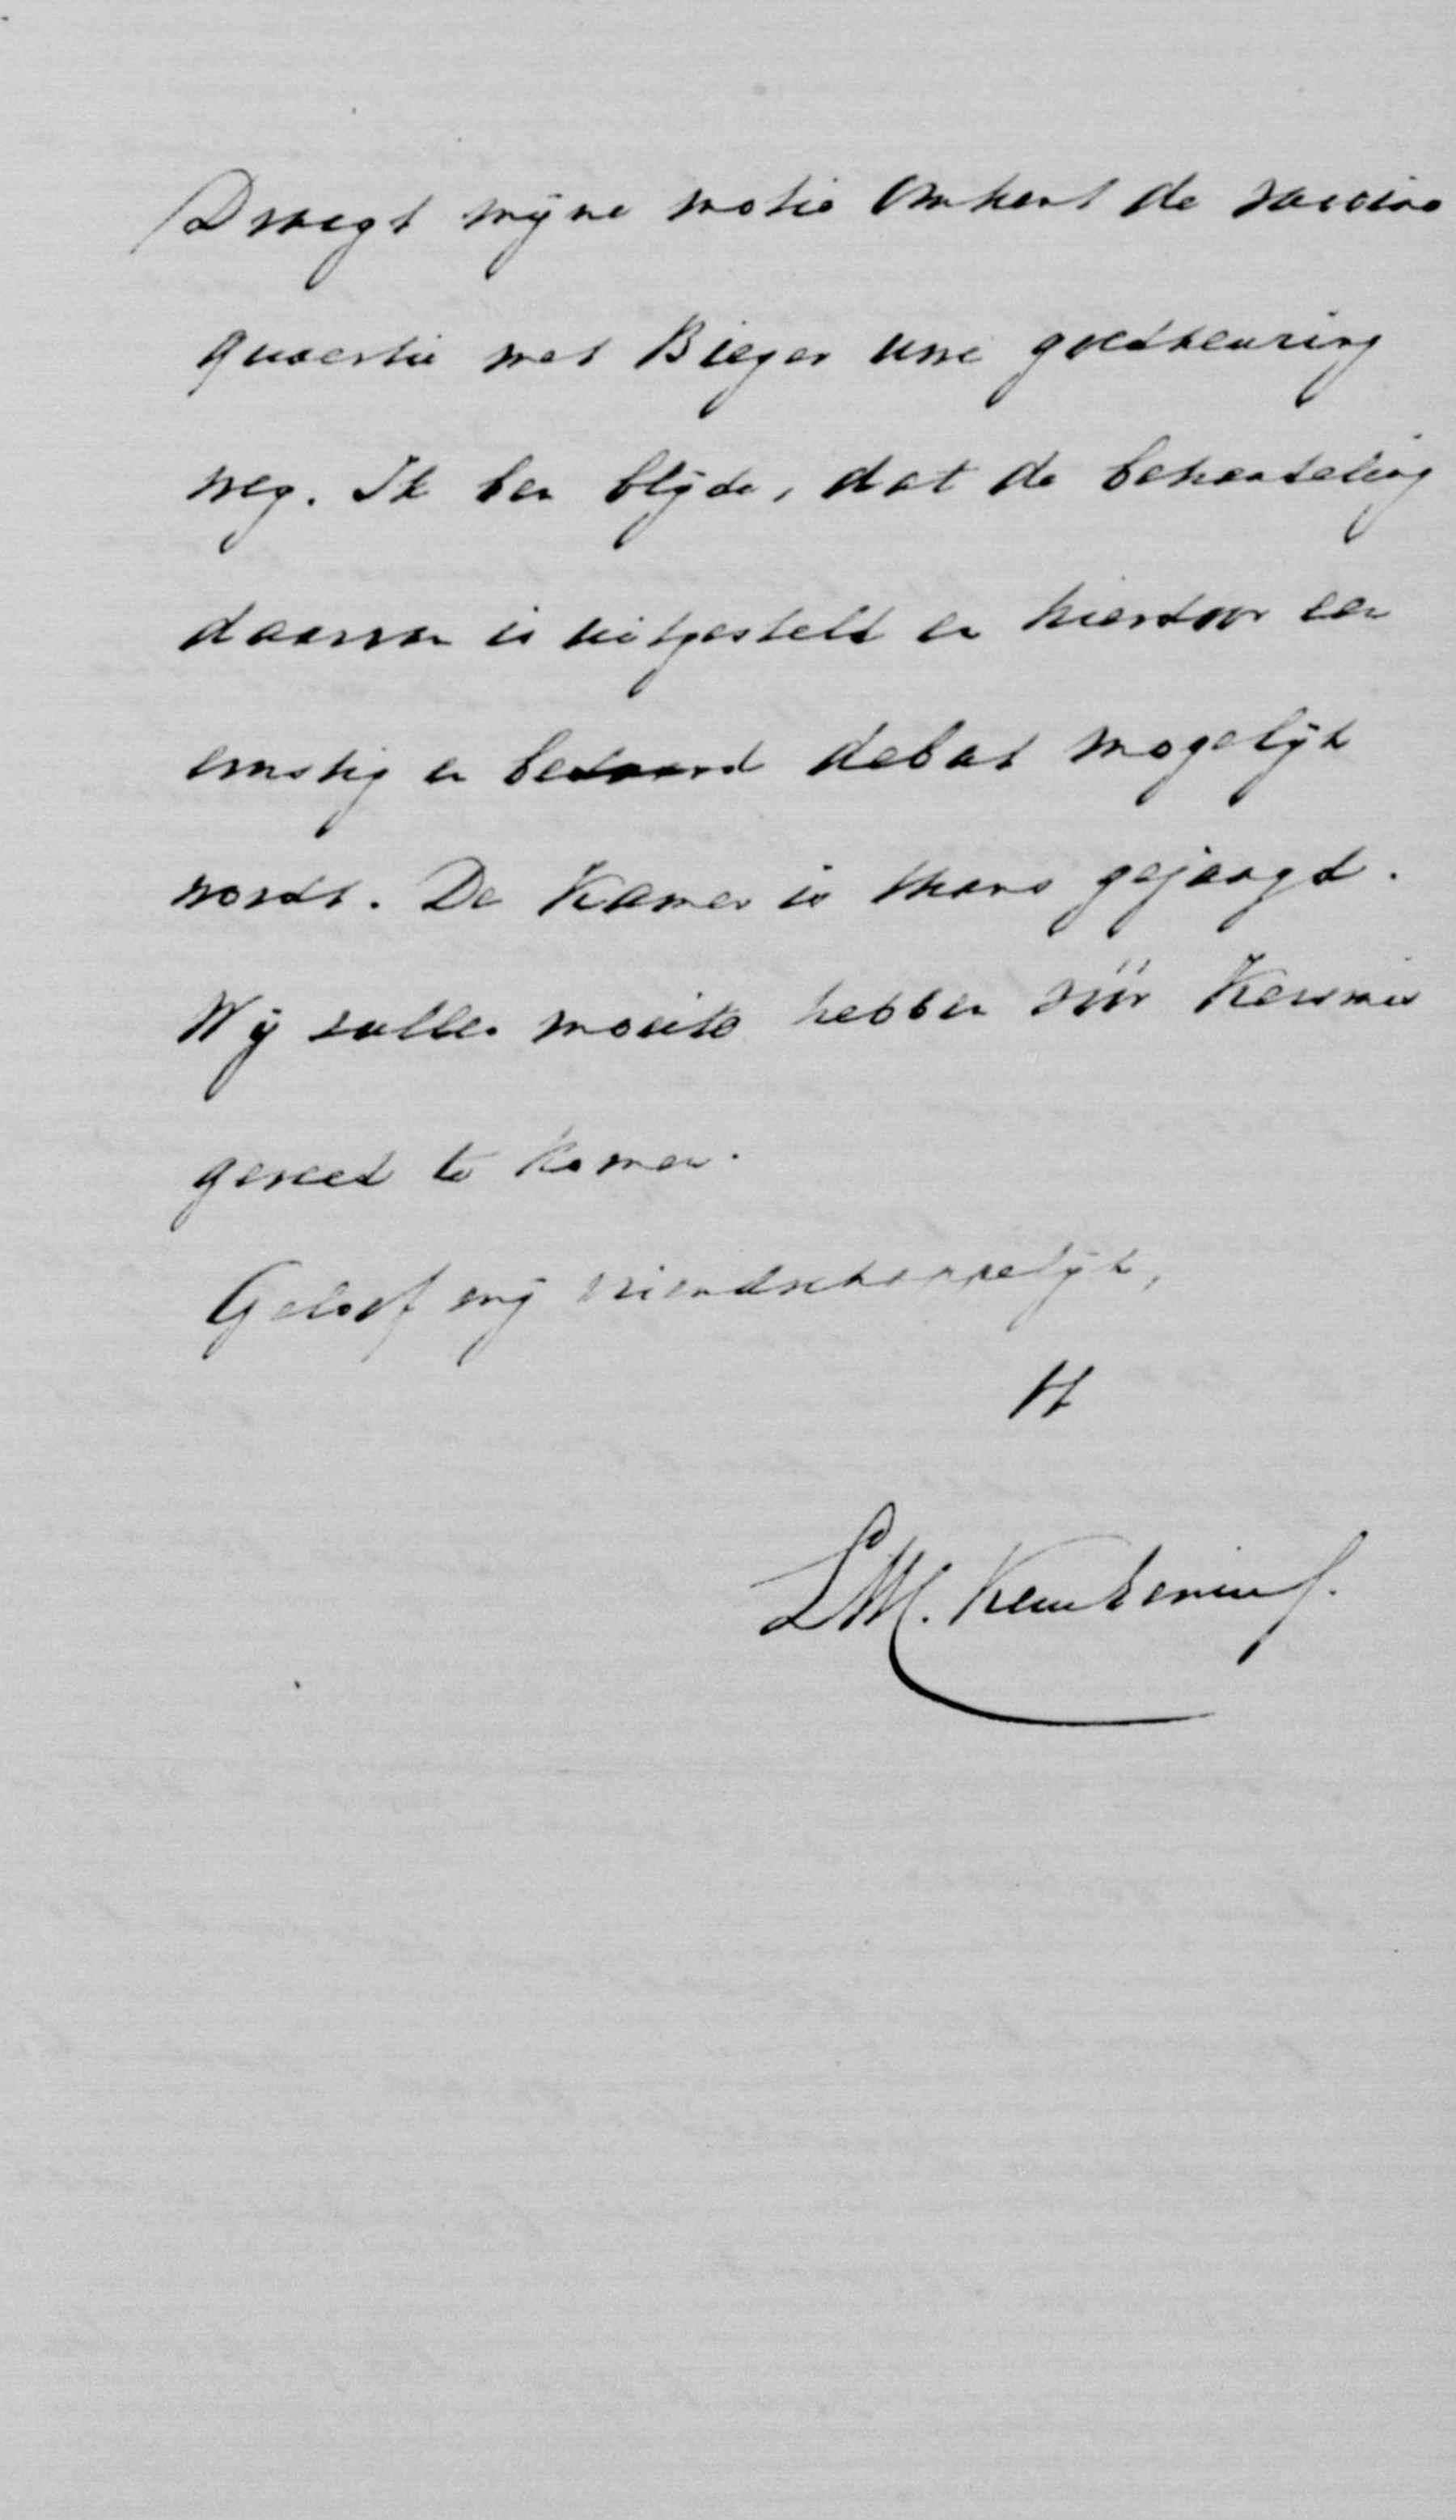 Draagt mijne motie omtrent de vaccine
quaestie met Bieger uwe goedkeuring
weg. Ik ben blijde, dat de behandeling
daarvan is uitgesteld en hierdoor een
ernstig en bedaard debat mogelijk
wordt. De Kamer is thans gejaagd.
Wij zullen moeite hebben vóór Kersmis
gereed te komen.
Geloof mij vriendschappelijk,
L.M. Keuchenius.